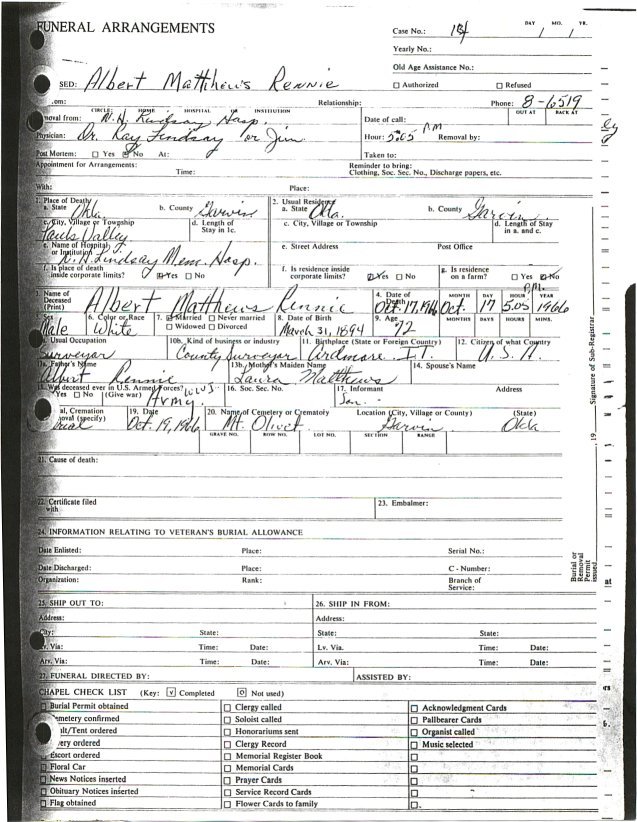 FUNERAL ARRANGEMENTS
DAY MO. YR.
Case No.: / /
Yearly No.:
Old Age Assistance No.:
SED: Albert Matthews Rennie
☐ Authorized ☐ Refused
om: Relationship: Phone: 8-6519
CIRCLE: HOME HOSPITAL INSTITUTION OUT AT BACK AT
moval from: N.H. Lindsay Hosp. Date of call:
Physician: Dr. Ray Lindsay or Jim Hour: 5:05 PM Removal by:
Post Mortem: ☐ Yes ☑ No At: Taken to:
Appointment for Arrangements: Reminder to bring:
Time: Clothing, Soc. Sec. No., Discharge papers, etc.
With: Place:
1. Place of Death 2. Usual Residence
a. State Okla. b. County Garvin a. State Okla. b. County Garvin
c. City, Village or Township d. Length of Stay in 1c. c. City, Village or Township d. Length of Stay in a. and c.
Pauls Valley
e. Name of Hospital or Institution N.H. Lindsay Mem. Hosp. e. Street Address Post Office
f. Is place of death inside corporate limits? ☑ Yes ☐ No f. Is residence inside corporate limits? ☑ Yes ☐ No g. Is residence on a farm? ☐ Yes ☑ No
3. Name of Deceased (Print) Albert Matthews Rennie 4. Date of Death Oct. 17, 1966 MONTH Oct. DAY 17 HOUR 5:05 P.M. YEAR 1966
Sex Male 6. Color or Race White 7. ☑ Married ☐ Never married ☐ Widowed ☐ Divorced 8. Date of Birth March 31, 1894 9. Age 72 MONTHS DAYS HOURS MINS.
Usual Occupation 10b. Kind of business or industry 11. Birthplace (State or Foreign Country) 12. Citizen of what Country
Surveyor County Surveyor Ardmore I.T. U.S.A.
Father's Name 13b. Mother's Maiden Name 14. Spouse's Name
Albert Rennie Laura Matthews
15. Was deceased ever in U.S. Armed Forces? 16. Soc. Sec. No. 17. Informant Address
Yes ☐ No (Give war) WWI Army Son
al, Cremation 19. Date 20. Name of Cemetery or Crematory Location (City, Village or County) (State)
oval (specify) Burial Oct. 19, 1966 Mt. Olivet Garvin Okla
GRAVE NO. ROW NO. LOT NO. SECTION RANGE
21. Cause of death:
22. Certificate filed with 23. Embalmer:
24. INFORMATION RELATING TO VETERAN'S BURIAL ALLOWANCE
Date Enlisted: Place: Serial No.:
Date Discharged: Place: C - Number:
Organization: Rank: Branch of Service:
25. SHIP OUT TO: 26. SHIP IN FROM:
Address: Address:
City: State: State: State:
Lv. Via: Time: Date: Lv. Via. Time: Date:
Arv. Via: Time: Date: Arv. Via: Time: Date:
27. FUNERAL DIRECTED BY: ASSISTED BY:
CHAPEL CHECK LIST (Key: ☑ Completed ☐ Not used)
Burial Permit obtained ☐ Clergy called ☐ Acknowledgment Cards
emetery confirmed ☐ Soloist called ☐ Pallbearer Cards
ult/Tent ordered ☐ Honorariums sent ☐ Organist called
very ordered ☐ Clergy Record ☐ Music selected
Escort ordered ☐ Memorial Register Book ☐
Floral Car ☐ Memorial Cards ☐
News Notices inserted ☐ Prayer Cards ☐
Obituary Notices inserted ☐ Service Record Cards ☐
Flag obtained ☐ Flower Cards to family ☐
Signature of Sub-Registrar
19
Burial or Removal Permit issued